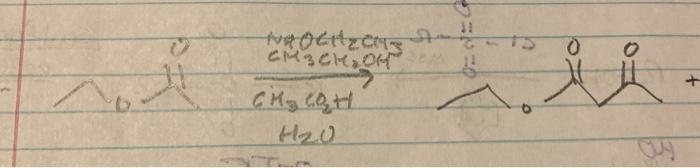 O
NaOCH2CH3
CH3CH2OH
O
CH3CO2H
H2O
O O
O
+